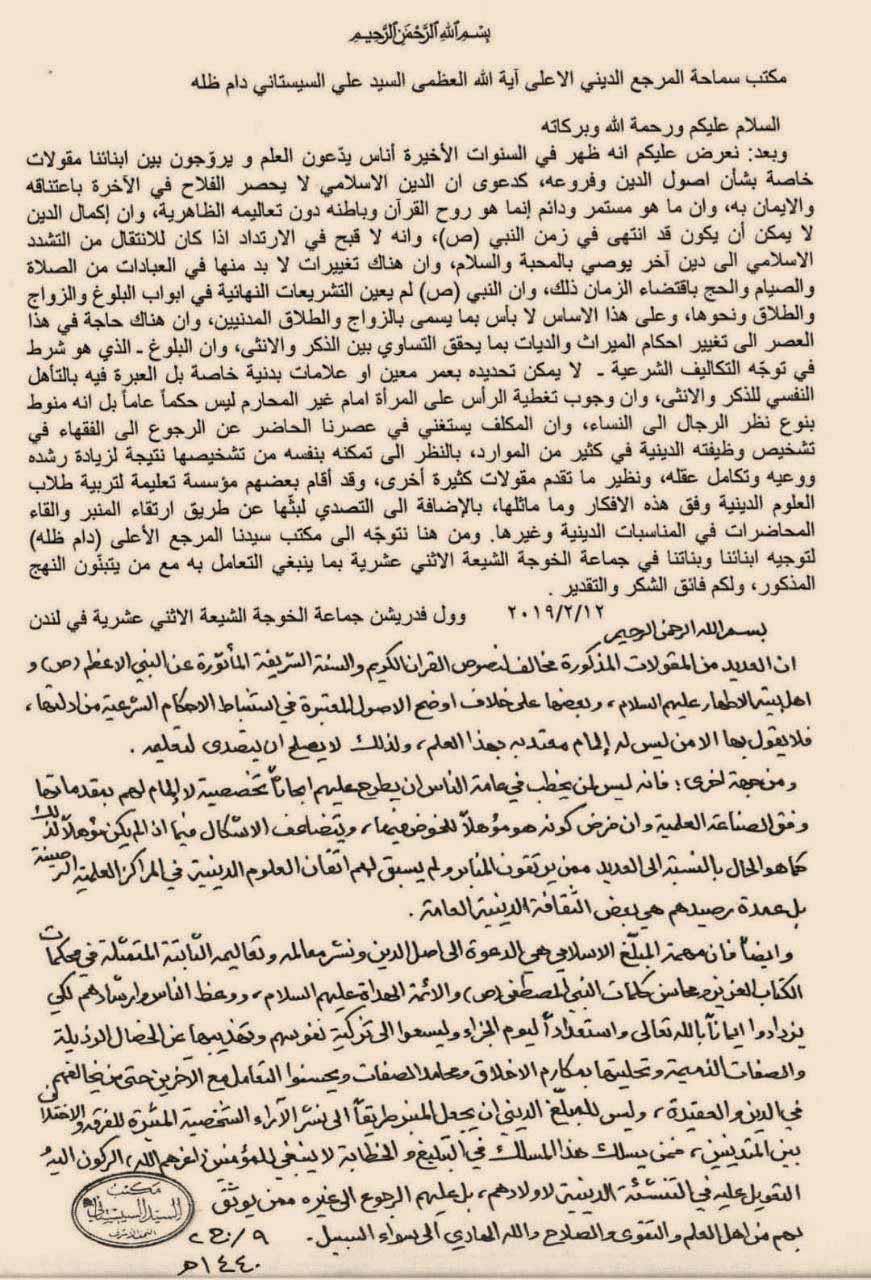 بسم الله الرحمن الرحيم
مكتب سماحة المرجع الديني الاعلى آية الله العظمى السيد علي السيستاني دام ظله
السلام عليكم ورحمة الله وبركاته
وبعد: نعرض عليكم انه ظهر في السنوات الأخيرة أناس يدّعون العلم و يروّجون بين ابنائنا مقولات
خاصة بشأن اصول الدين وفروعه، كدعوى ان الدين الاسلامي لا يحصر الفلاح في الآخرة باعتناقه
والايمان به، وان ما هو مستمر ودائم إنما هو روح القرآن وباطنه دون تعاليمه الظاهرية، وان إكمال الدين
لا يمكن أن يكون قد انتهى في زمن النبي (ص)، وانه لا قبح في الارتداد اذا كان للانتقال من التشدد
الاسلامي الى دين آخر يوصي بالمحبة والسلام، وان هناك تغييرات لا بد منها في العبادات من الصلاة
والصيام والحج باقتضاء الزمان ذلك، وان النبي (ص) لم يعين التشريعات النهائية في ابواب البلوغ والزواج
والطلاق ونحوها، وعلى هذا الاساس لا بأس بما يسمى بالزواج والطلاق المدنيين، وان هناك حاجة في هذا
العصر الى تغيير احكام الميراث والديات بما يحقق التساوي بين الذكر والانثى، وان البلوغ ـ الذي هو شرط
في توجّه التكاليف الشرعية ـ لا يمكن تحديده بعمر معين او علامات بدنية خاصة بل العبرة فيه بالتأهل
النفسي للذكر والانثى، وان وجوب تغطية الرأس على المرأة امام غير المحارم ليس حكماً عاماً بل انه منوط
بنوع نظر الرجال الى النساء، وان المكلف يستغني في عصرنا الحاضر عن الرجوع الى الفقهاء في
تشخيص وظيفته الدينية في كثير من الموارد، بالنظر الى تمكنه بنفسه من تشخيصها نتيجة لزيادة رشده
ووعيه وتكامل عقله، ونظير ما تقدم مقولات كثيرة أخرى، وقد أقام بعضهم مؤسسة تعليمة لتربية طلاب
العلوم الدينية وفق هذه الافكار وما ماثلها، بالإضافة الى التصدي لبثّها عن طريق ارتقاء المنبر والقاء
المحاضرات في المناسبات الدينية وغيرها. ومن هنا نتوجّه الى مكتب سيدنا المرجع الأعلى (دام ظله)
لتوجيه ابنائنا وبناتنا في جماعة الخوجة الشيعة الاثني عشرية بما ينبغي التعامل به مع من يتبنّون النهج
المذكور، ولكم فائق الشكر والتقدير .
٢٠١٩/٢/١٢ وول فدريشن جماعة الخوجة الشيعة الاثني عشرية في لندن
بسم الله الرحمن الرحيم
ان العديد من المقولات المذكورة مخالف لنصوص القران الكريم والسنة الشريفة المأثورة عن النبي الاعظم (ص) و
اهل بيته الاطهار عليهم السلام، وبعضها على خلاف اوضح الاصول المعتبرة في استنباط الاحكام الشرعية من ادلتها،
فلا يقول بها الا من ليس له إلمام معتد به بهذا العلم، ولذلك لا يصلح ان يتصدى لتعليمه.
ومن جهة اخرى؛ فانه ليس لمن يخطب في عامة الناس ان يطرح عليهم ابحاثاً تخصصية لا إلمام لهم بمقدماتها
وفق الصناعة العلمية وان فرض كونه هو مؤهلاً للخوض فيها، ويتضاعف الاشكال فيما اذا لم يكن مؤهلاً لذلك
كما هو الحال بالنسبة الى العديد ممن يرتقون المنابر ولم يسبق لهم اتقان العلوم الدينية في المراكز العلمية الرصينة
بل عمدة رصيدهم هي بعض الثقافة الدينية العامة.
وايضاً فان مهمة المبلّغ الاسلامي هي الدعوة الى اصل الدين ونشر معالمه وتعاليمه الثابتة المتمثلة في محكمات
الكتاب العزيز ومحاسن كلمات النبي المصطفى (ص) والائمة الهداة عليهم السلام، ووعظ الناس وارشادهم لكي
يزدادوا ايماناً بالله تعالى واستعداداً ليوم الجزاء ويسعوا الى تزكية نفوسهم وتهذيبها عن الخصال الرذيلة
والصفات الذميمة وتحليتها بمكارم الاخلاق ومحامد الصفات ويحسنوا التعامل مع الآخرين حتى من يخالفهم
في الدين والعقيدة، وليس للمبلّغ الديني ان يجعل المنبر طريقاً الى نشر الآراء الشخصية المثيرة للفرقة والاختلاف
بين المتدينين، فمن يسلك هذا المسلك في التبليغ والخطابة لا ينبغي للمؤمنين اعزهم الله، الركون اليه و
التعويل عليه في التنشئة الدينية لاولادهم، بل عليهم الرجوع الى غيره ممن يوثق
بهم من اهل العلم والتقوى والصلاح والله الهادي الى سواء السبيل.
٩/ج٢
١٤٤٠هـ
مكتب
السيد السيستاني
النجف الاشرف